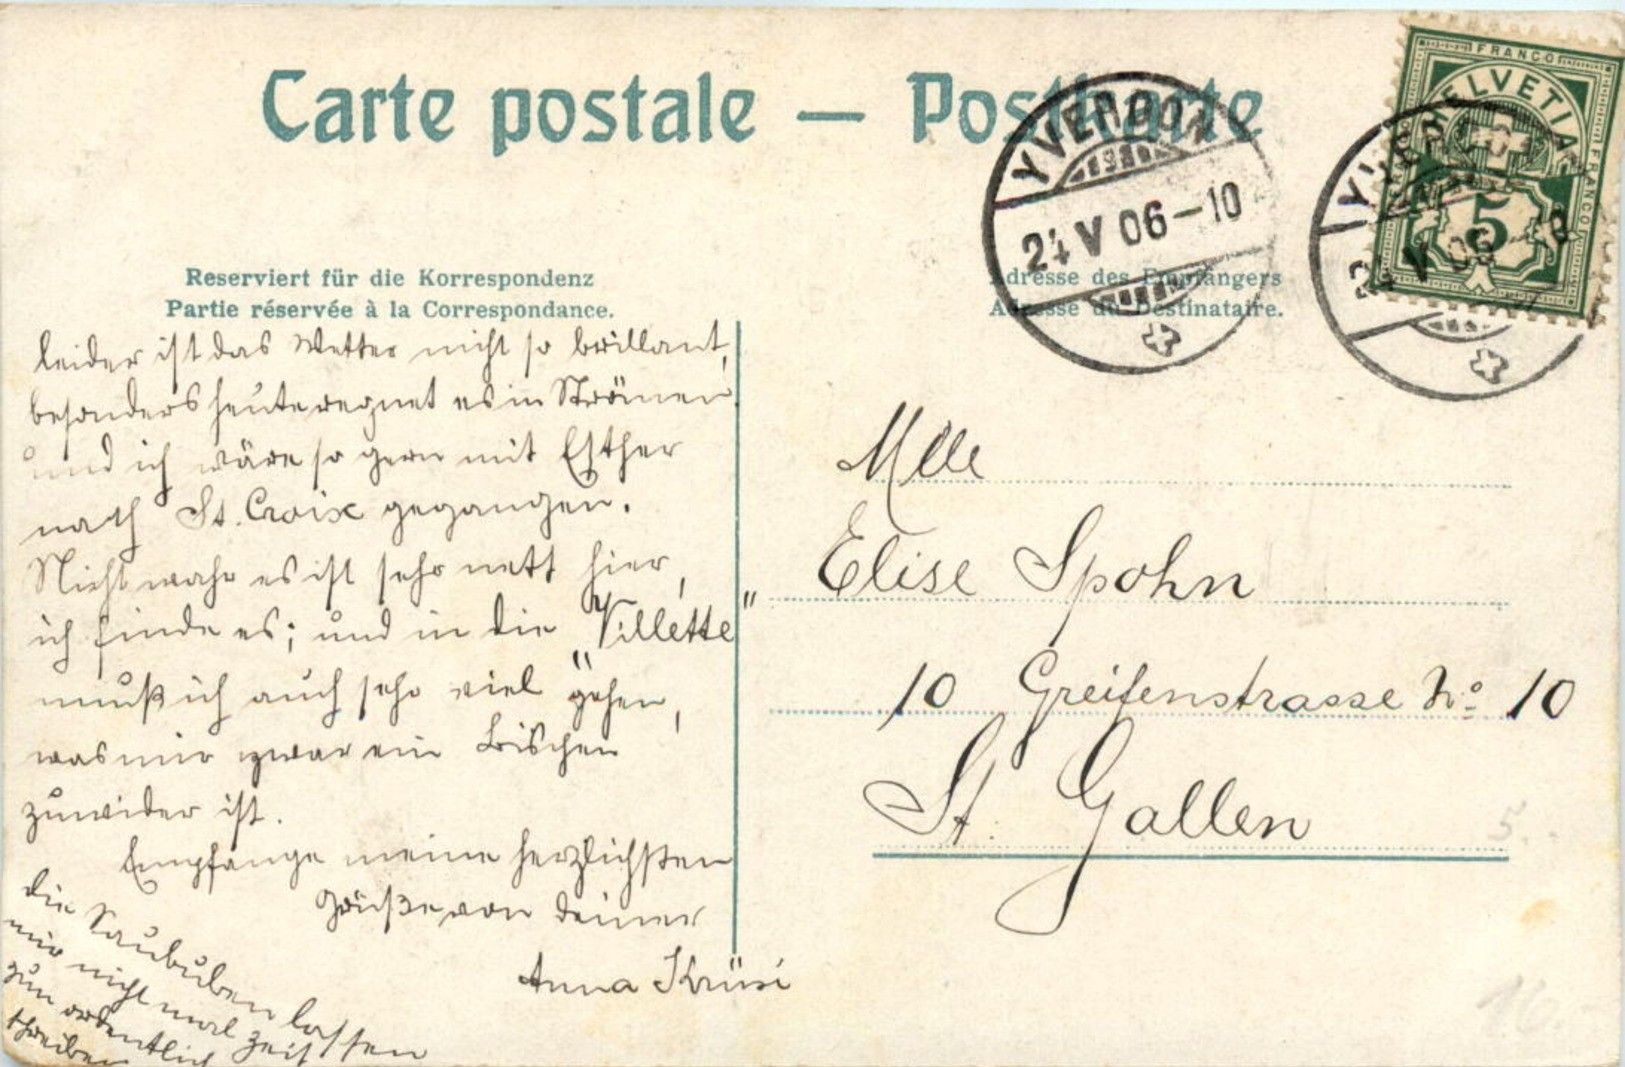 Carte postale — Postkarte
FRANCO
HELVETIA
FRANCO
5
YVERDON
24 V 06-10
YVERDON
24 V 06-10
Reserviert für die Korrespondenz
Partie réservée à la Correspondance.
Adresse des Empfängers
Adresse du Destinataire.
leider ist das Wetter nicht so brillant,
besonders heute regnet es in Strömen
und ich wäre so gern mit Esther
nach St. Croix gegangen.
Nicht wahr es ist sehr nett hier,
ich finde es; und in die "Villette"
muß ich auch sehr viel gehen,
was mir zwar ein bischen
zuwider ist.
Empfange meine herzlichsten
Grüße von deiner
Anna Krüsi
die Saububen lassen
mir nicht mal Zeit
zum ordentlich
schreiben
Mlle
Elise Spohn
10 Greifenstrasse No 10
St. Gallen
5.
16.-